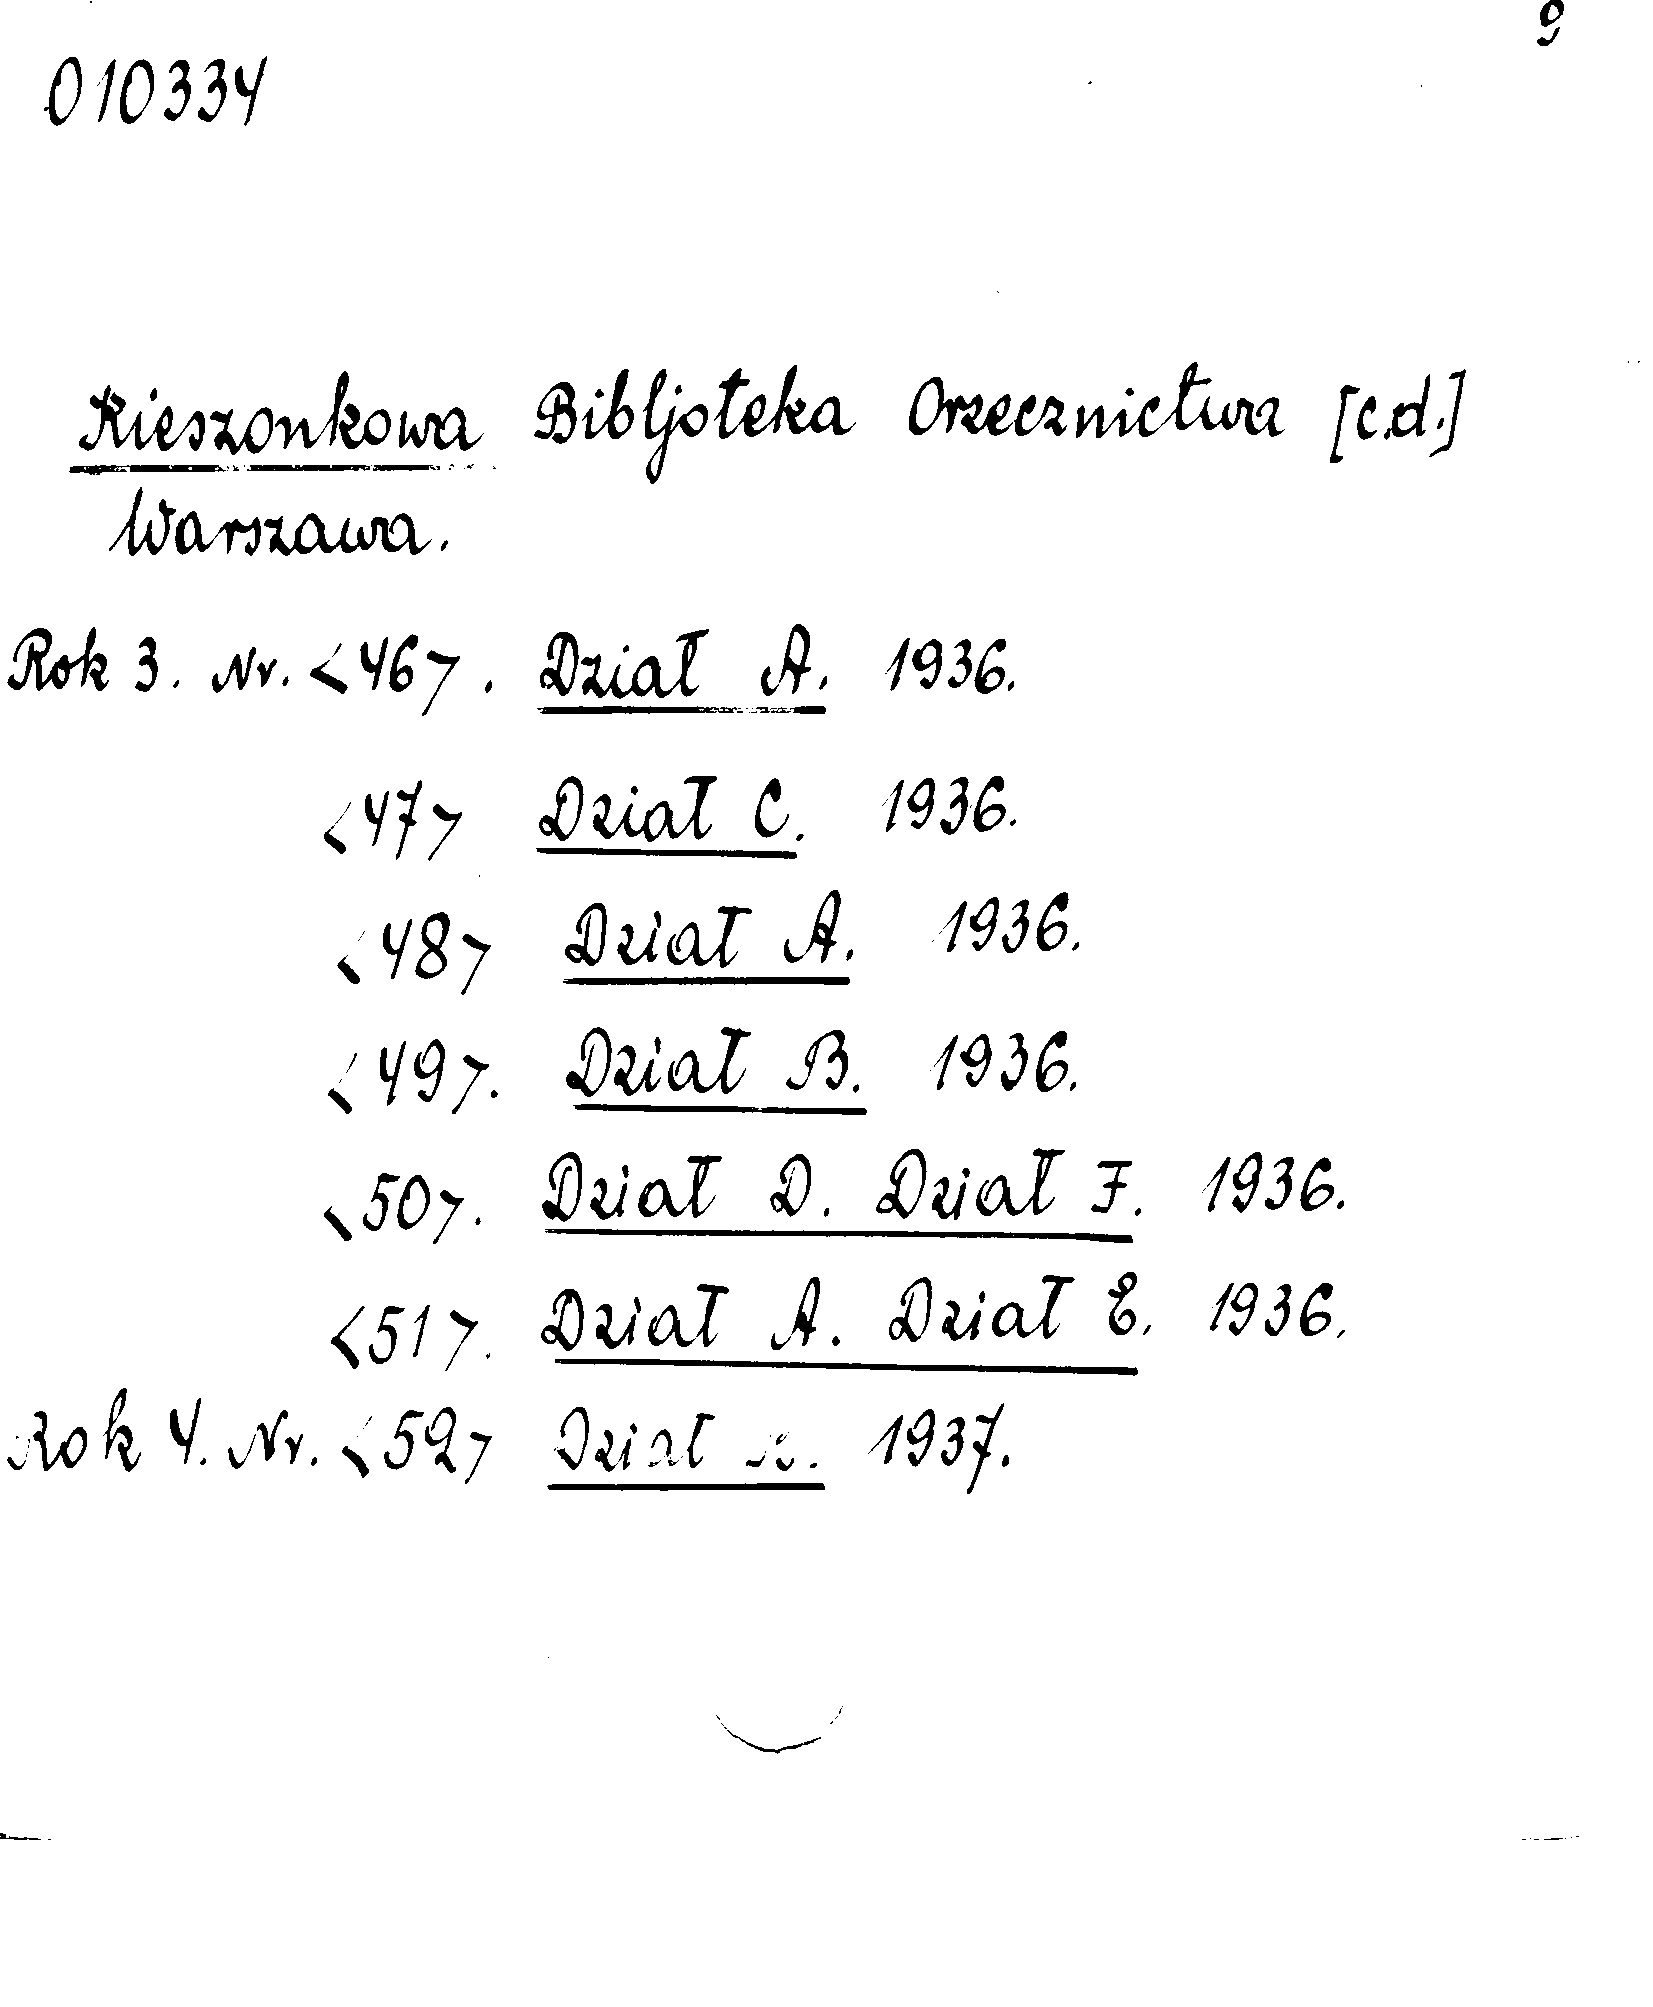 9
010334
Kieszonkowa Bibljoteka Orzecznictwa [c.d.]
Warszawa.
Rok 3. Nr. <46>. Dział A. 1936.
<47> Dział C. 1936.
<48> Dział A. 1936.
<49>. Dział B. 1936.
<50>. Dział D. Dział F. 1936.
<51>. Dział A. Dział E. 1936.
Rok 4. Nr. <52> Dział 1937.